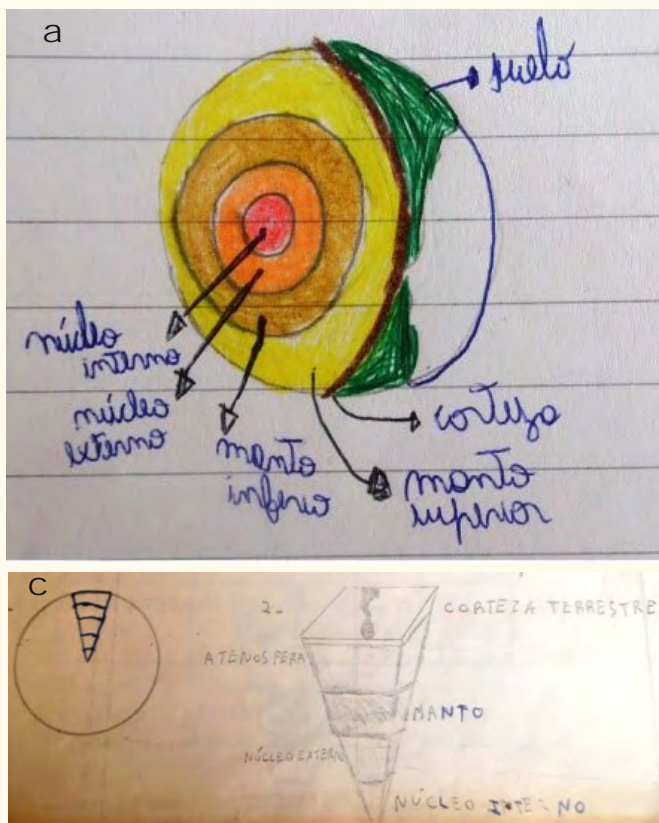 a
suelo
núcleo
interno
núcleo
externo
manto
inferio
corteza
manto
superior
C
2-
CORTEZA TERRESTRE
ATENOSPERA
MANTO
NÚCLEO EXTERN
NÚCLEO INTERNO